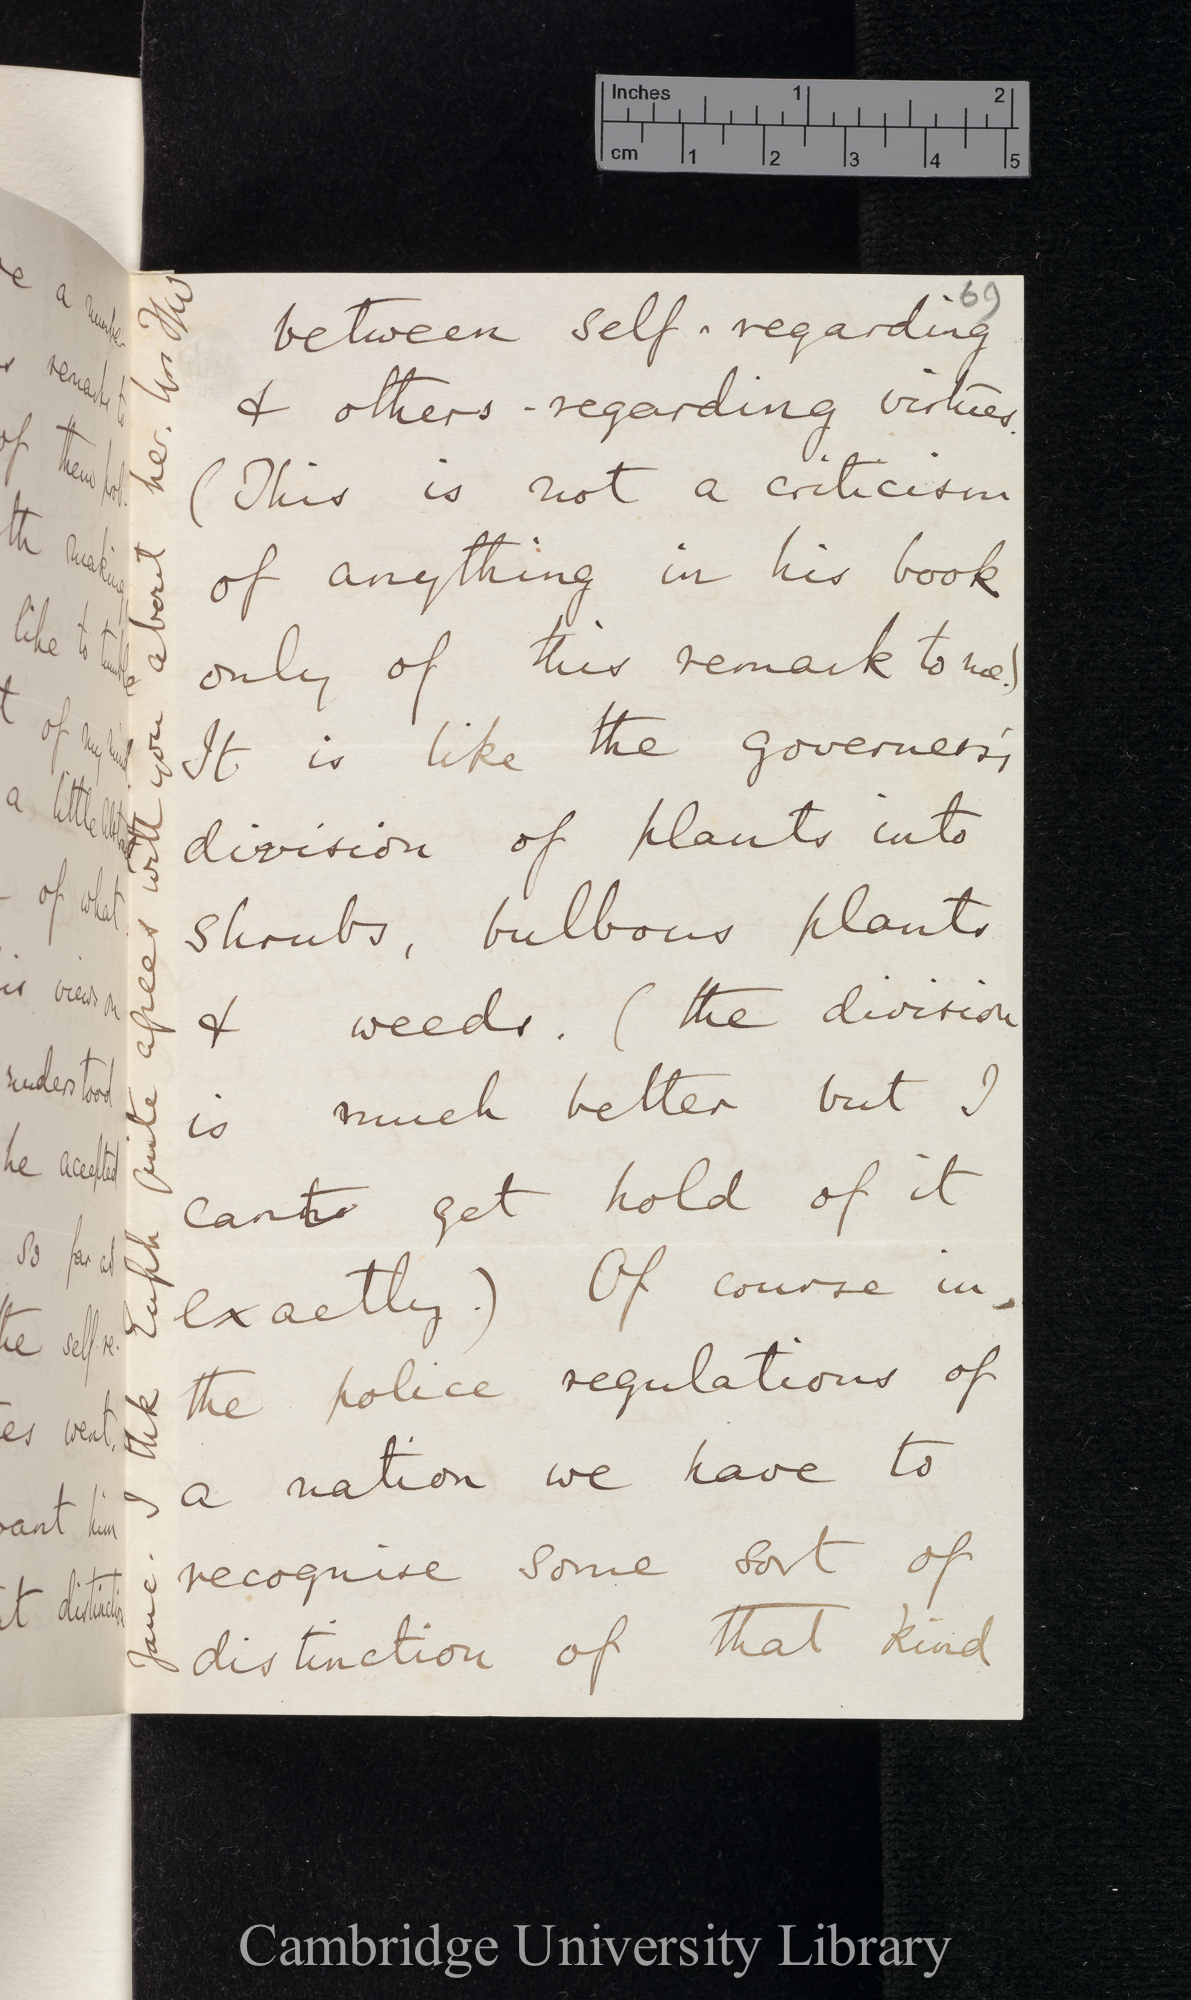 Inches 1 2
cm 1 2 3 4 5
69
between self-regarding
& others-regarding virtues.
(This is not a criticism
of anything in his book
only of this remark to me.)
It is like the governess's
division of plants into
shrubs, bulbous plants
& weeds. (the division
is much better but I
cant get hold of it
exactly.) Of course in
the police regulations of
a nation we have to
recognise some sort of
distinction of that kind
Jane. I thk Euph quite agrees with you about her.
a number
remarks to
of them
th making
like to
t of my
a little
of what
views on
understood
he accepted
so far as
the self-re-
es went.
want him
t distinction
Cambridge University Library